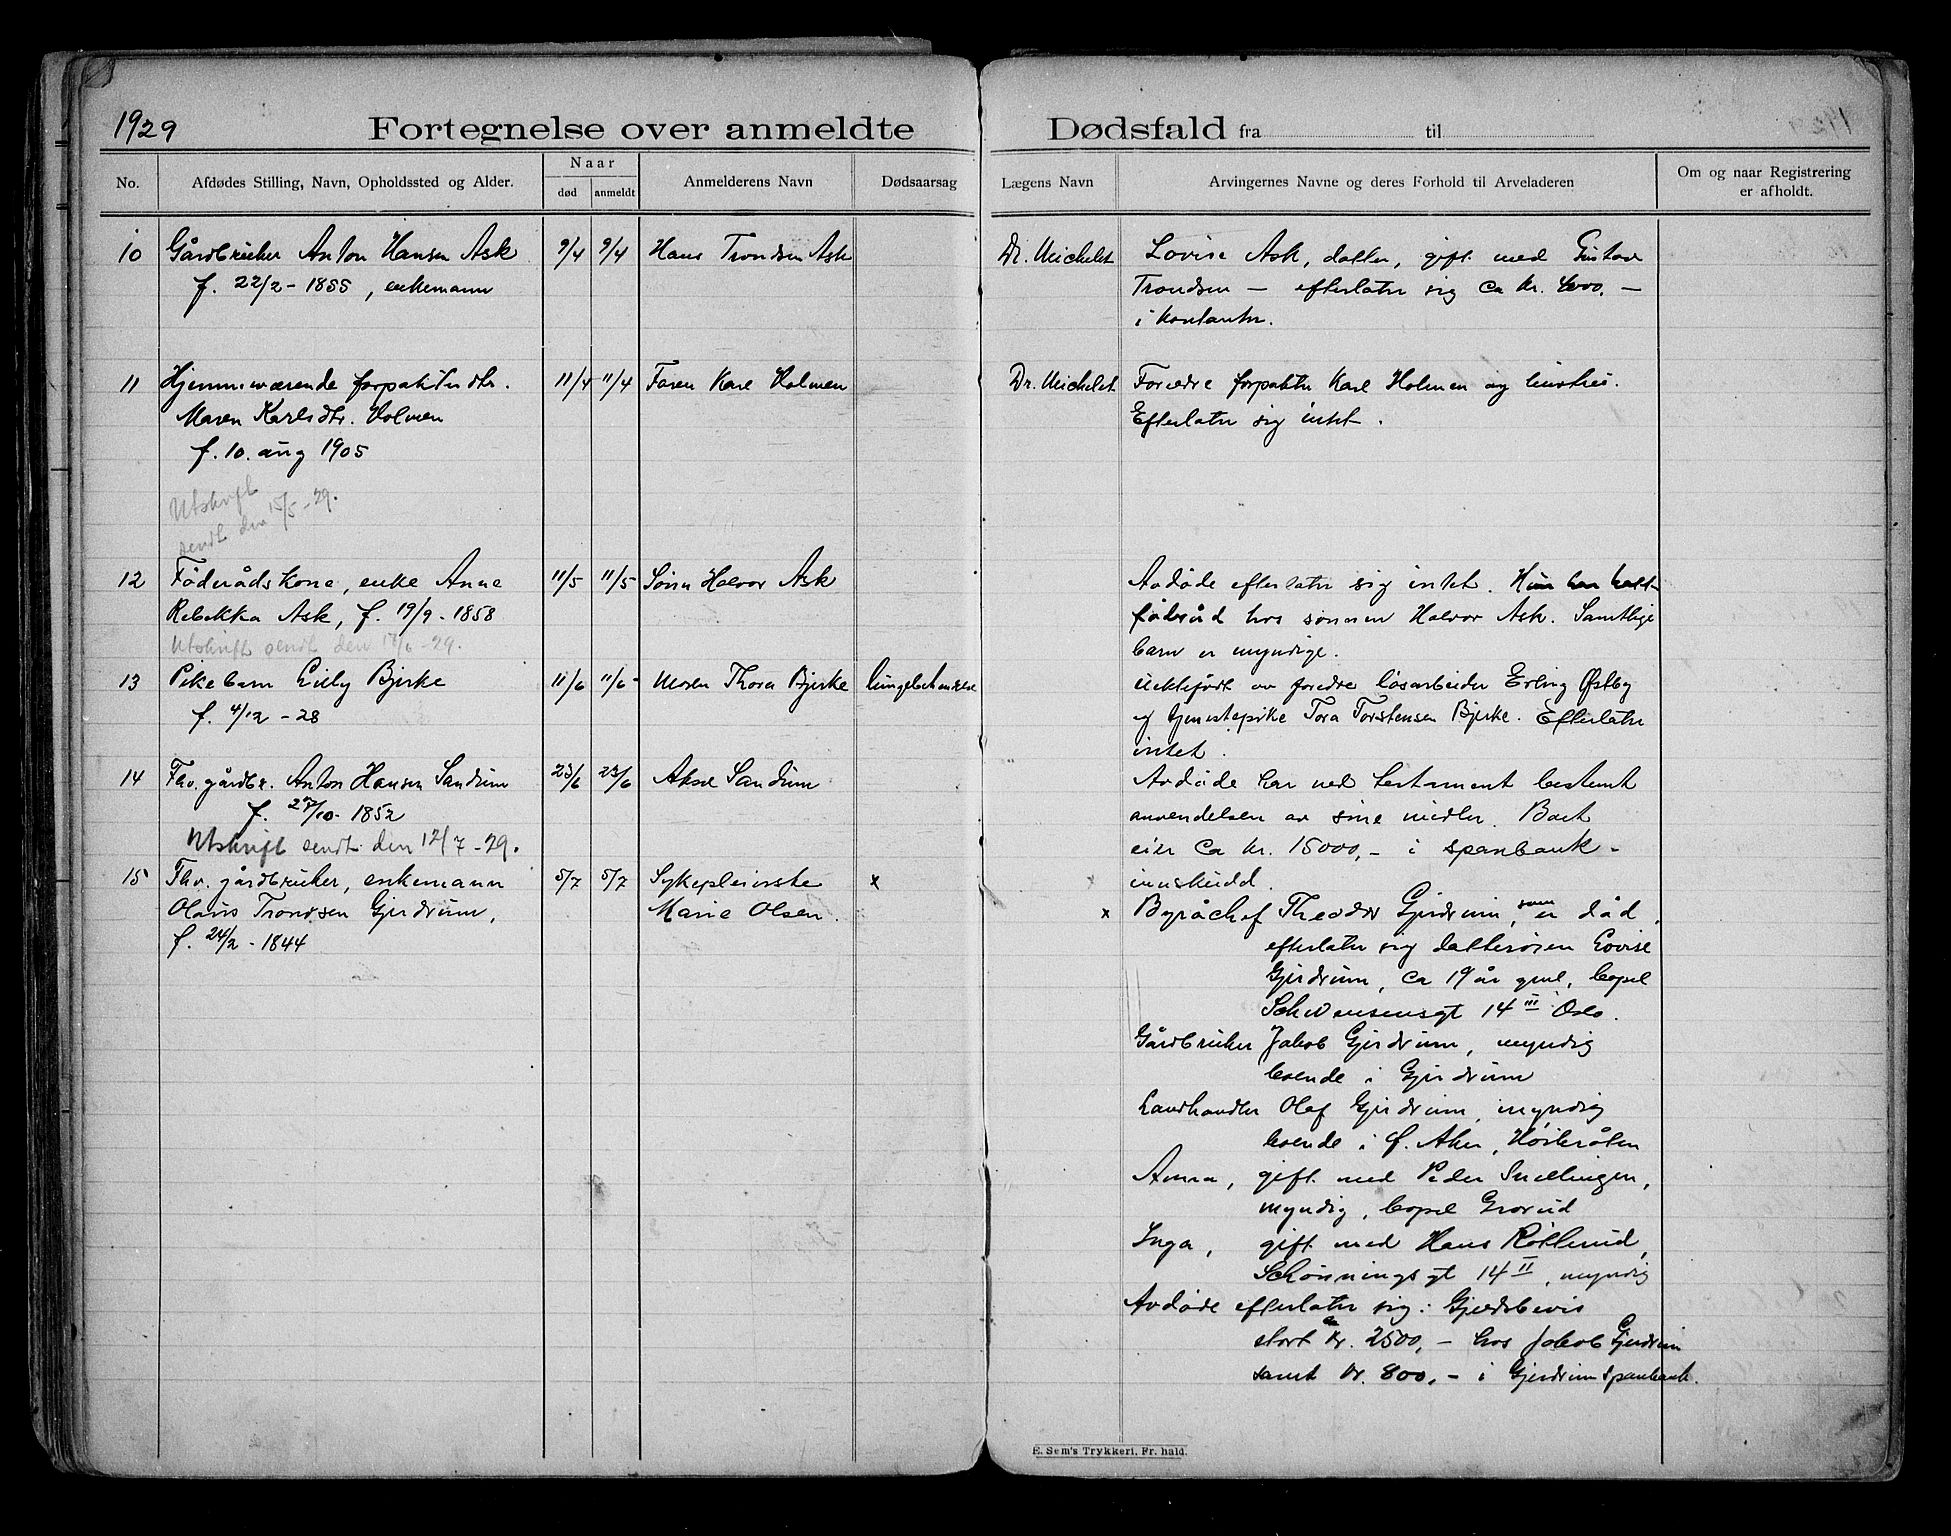 1929
Fortegnelse over anmeldte Dødsfald fra til
No.
Afdødes Stilling, Navn, Opholdssted og Alder.
Naar
død
anmeldt
Anmelderens Navn
Dødsaarsag
Lægens Navn
Arvingernes Navne og deres Forhold til Arveladeren
Om og naar Registrering
er afholdt.
10 Gårdbruker Anton Hansen Ask 9/4 9/4 Hans Trondsen Ask Dr. Michelet Lovise Ask, datter, gift med Gustav
f. 22/2 - 1855, enkemann Trondsen — efterlater sig ca kr. 4000,-
i kontanter.
11 Hjemmeværende forpakterdtr. 11/4 11/4 Faren Karl Holmen Dr. Michelet Foreldre forpakter Karl Holmen og hustru.
Maren Karlsdtr. Holmen Efterlater sig intet.
f. 10. aug 1905
Utskrift
sendt den 15/5 - 29.
12 Föderådskone, enke Anne 11/5 11/5 Sönn Halvor Ask Avdöde efterlater sig intet. Hun har hatt
Rebekka Ask, f. 19/9 - 1858 föderåd hos sönnen Halvor Ask. Samtlige
Utskrift sendt den /6 - 29. barn er myndige.
13 Pikebarn Lilly Bjerke 11/6 11/6 Moren Thora Bjerke lungebetendelse uektefödt av foreldre lösarbeider Erling Østby
f. 4/12 - 28 og tjenestepike Tora Torstensen Bjerke. Efterlater
intet.
14 Fhv. gårdbr. Anton Hansen Sandum 23/6 23/6 Aksel Sandum Avdöde har ved testament bestemt
f. /10 - 1852 anvendelsen av sine midler. Boet
Utskrift sendt den 12/7 - 29. eier ca kr. 15000,- i sparebank-
innskudd.
15 Fhv. gårdbruker, enkemann 5/7 5/7 Sykepleierske x
Olaus Trondsen Gjerdrum, Marie Olsen. x Byråchef Theodor Gjerdrum, som er död,
f. 24/2 - 1844 efterlater sig datteren Lovise
Gjerdrum, ca 19 år gml, bopel
Schwensensgt 14 III Oslo.
Gårdbruker Jakob Gjerdrum, myndig
boende i Gjerdrum
Landhandler Olaf Gjerdrum, myndig
boende i Ø. Aker, Höibråten
Anna, gift med Peder Snellingen,
myndig, bopel Grorud
Inga, gift med Hans
Schönningsgt 14 II, myndig
Avdöde efterlater sig: Gjeldsbevis
stort ca kr. 2500,- hos Jakob Gjerdrum
samt kr. 800,- i Gjerdrum sparebank.
E. Sem's Trykkeri, Fr. hald.